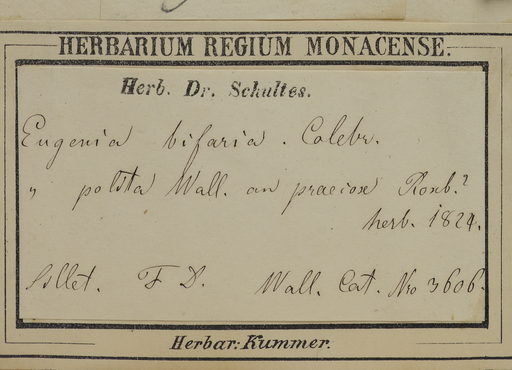 HERBARIUM REGIUM MONACENSE.
Herb. Dr. Schultes.
Eugenia bifaria. Colebr.
" polita Wall. an praecox Roxb.?
herb. 1824.
Sillet. F D. Wall. Cat. No 3606.
Herbar: Kummer.